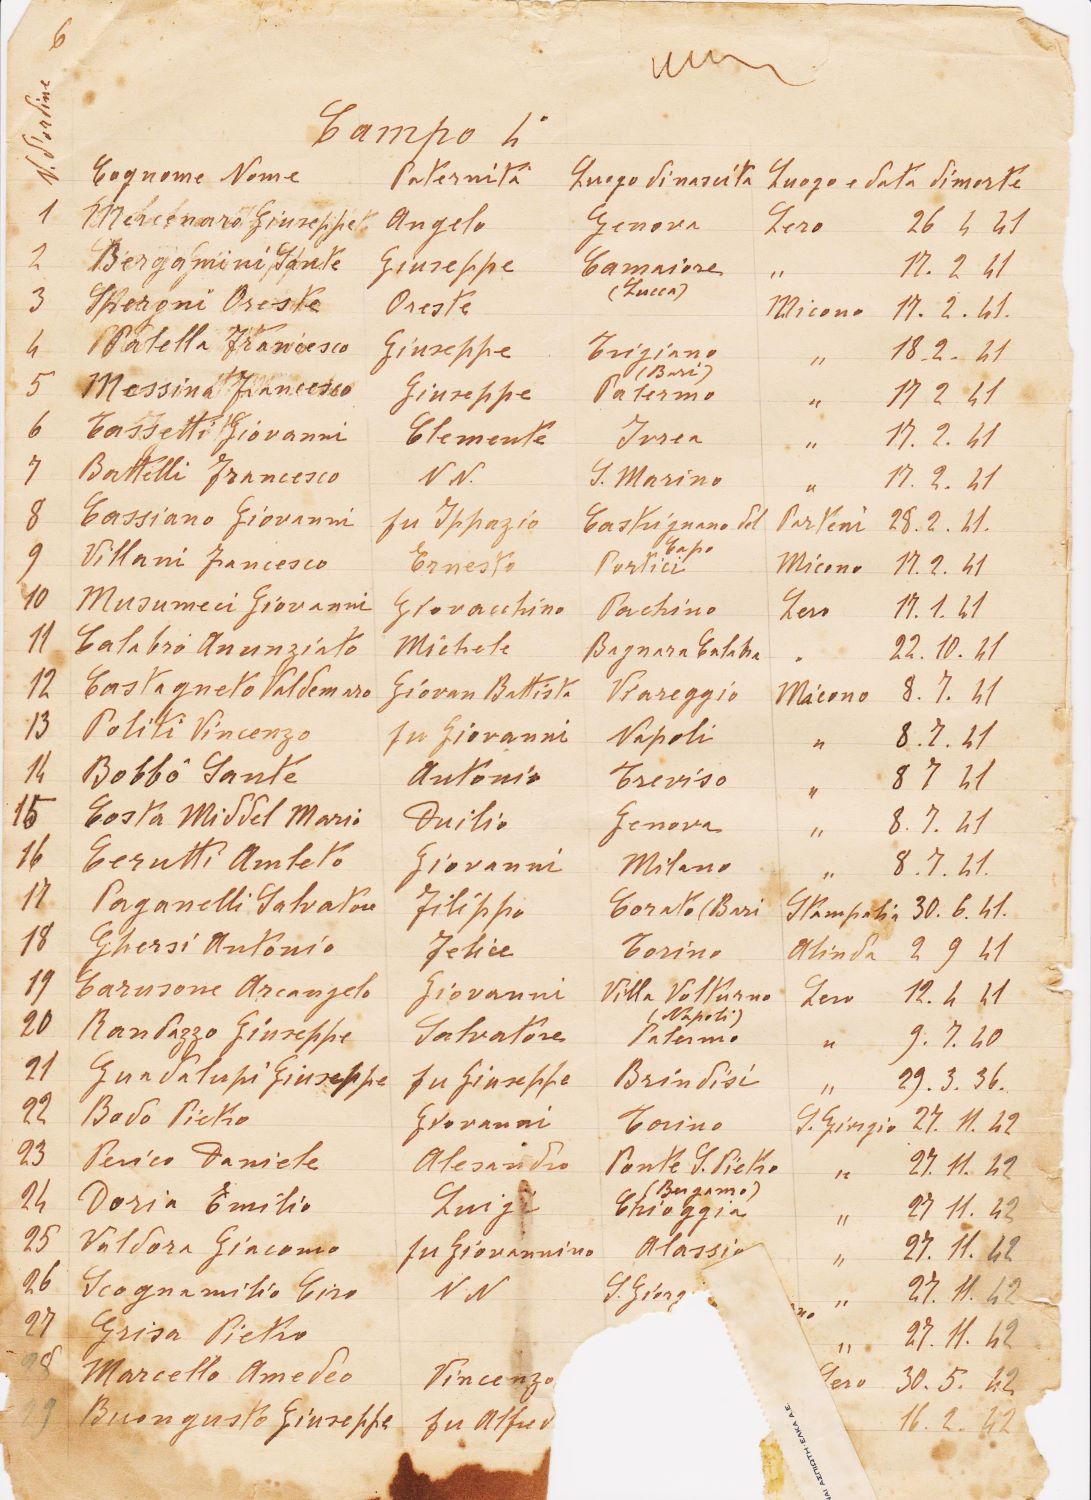 6
N. d'ordine
Campo 4°
Cognome Nome Paternità Luogo di nascita Luogo e data di morte
1 Mercenaro Giuseppe Angelo Genova Lero 26 4 41
2 Bergamini Sante Giuseppe Camaiore (Lucca) " 17. 2 41
3 Spergni Oreste Oreste Micono 17. 2. 41.
4 Patella Francesco Giuseppe Trigiano (Bari) " 18. 2. 41
5 Messina Francesco Giuseppe Palermo " 17 2 41
6 Cassetti Giovanni Clemente Ivrea " 17. 2. 41
7 Battelli Francesco N.N. S. Marino " 17. 2. 41
8 Cassiano Giovanni fu Ippazio Castrignano del Capo Parteni 28. 2. 41.
9 Villani Francesco Ernesto Portici Micono 17. 2. 41
10 Musumeci Giovanni Giovacchino Pachino Lero 17. 1. 41
11 Calabrò Anunziato Michele Bagnara Calabra " 22. 10. 41
12 Castagneto Valdemaro Giovan Battista Viareggio Micono 8. 7. 41
13 Politi Vincenzo fu Giovanni Napoli " 8. 7. 41
14 Bobbò Sante Antonio Treviso " 8 7 41
15 Costa Middel Mario Duilio Genova " 8. 7. 41
16 Cerutti Amleto Giovanni Milano " 8. 7. 41.
17 Paganelli Salvatore Filippo Corato (Bari Stampalia 30. 6. 41.
18 Ghersi Antonio Felice Torino Alinda 2 9 41
19 Carusone Arcangelo Giovanni Villa Volturno (Napoli) Lero 12. 4 41
20 Randazzo Giuseppe Salvatore Palermo " 9. 7. 40
21 Guadalupi Giuseppe fu Giuseppe Brindisi " 29. 3. 36.
22 Bodo Pietro Giovanni Torino S. Giorgio 27. 11. 42
23 Perico Daniele Alesandro Ponte S. Pietro (Bergamo) " 27. 11. 42
24 Doria Emilio Luigi Chioggia " 27 11. 42
25 Valdora Giacomo fu Giovannino Alassio " 27. 11. 42
26 Scognamilio Ciro N.N S. Giorg " 27. 11. 42
27 Grisa Pietro " 27. 11. 42
28 Marcello Amedeo Vincenzo Lero 30. 5. 42
29 Buongusto Giuseppe fu Alfred 16. 2. 42